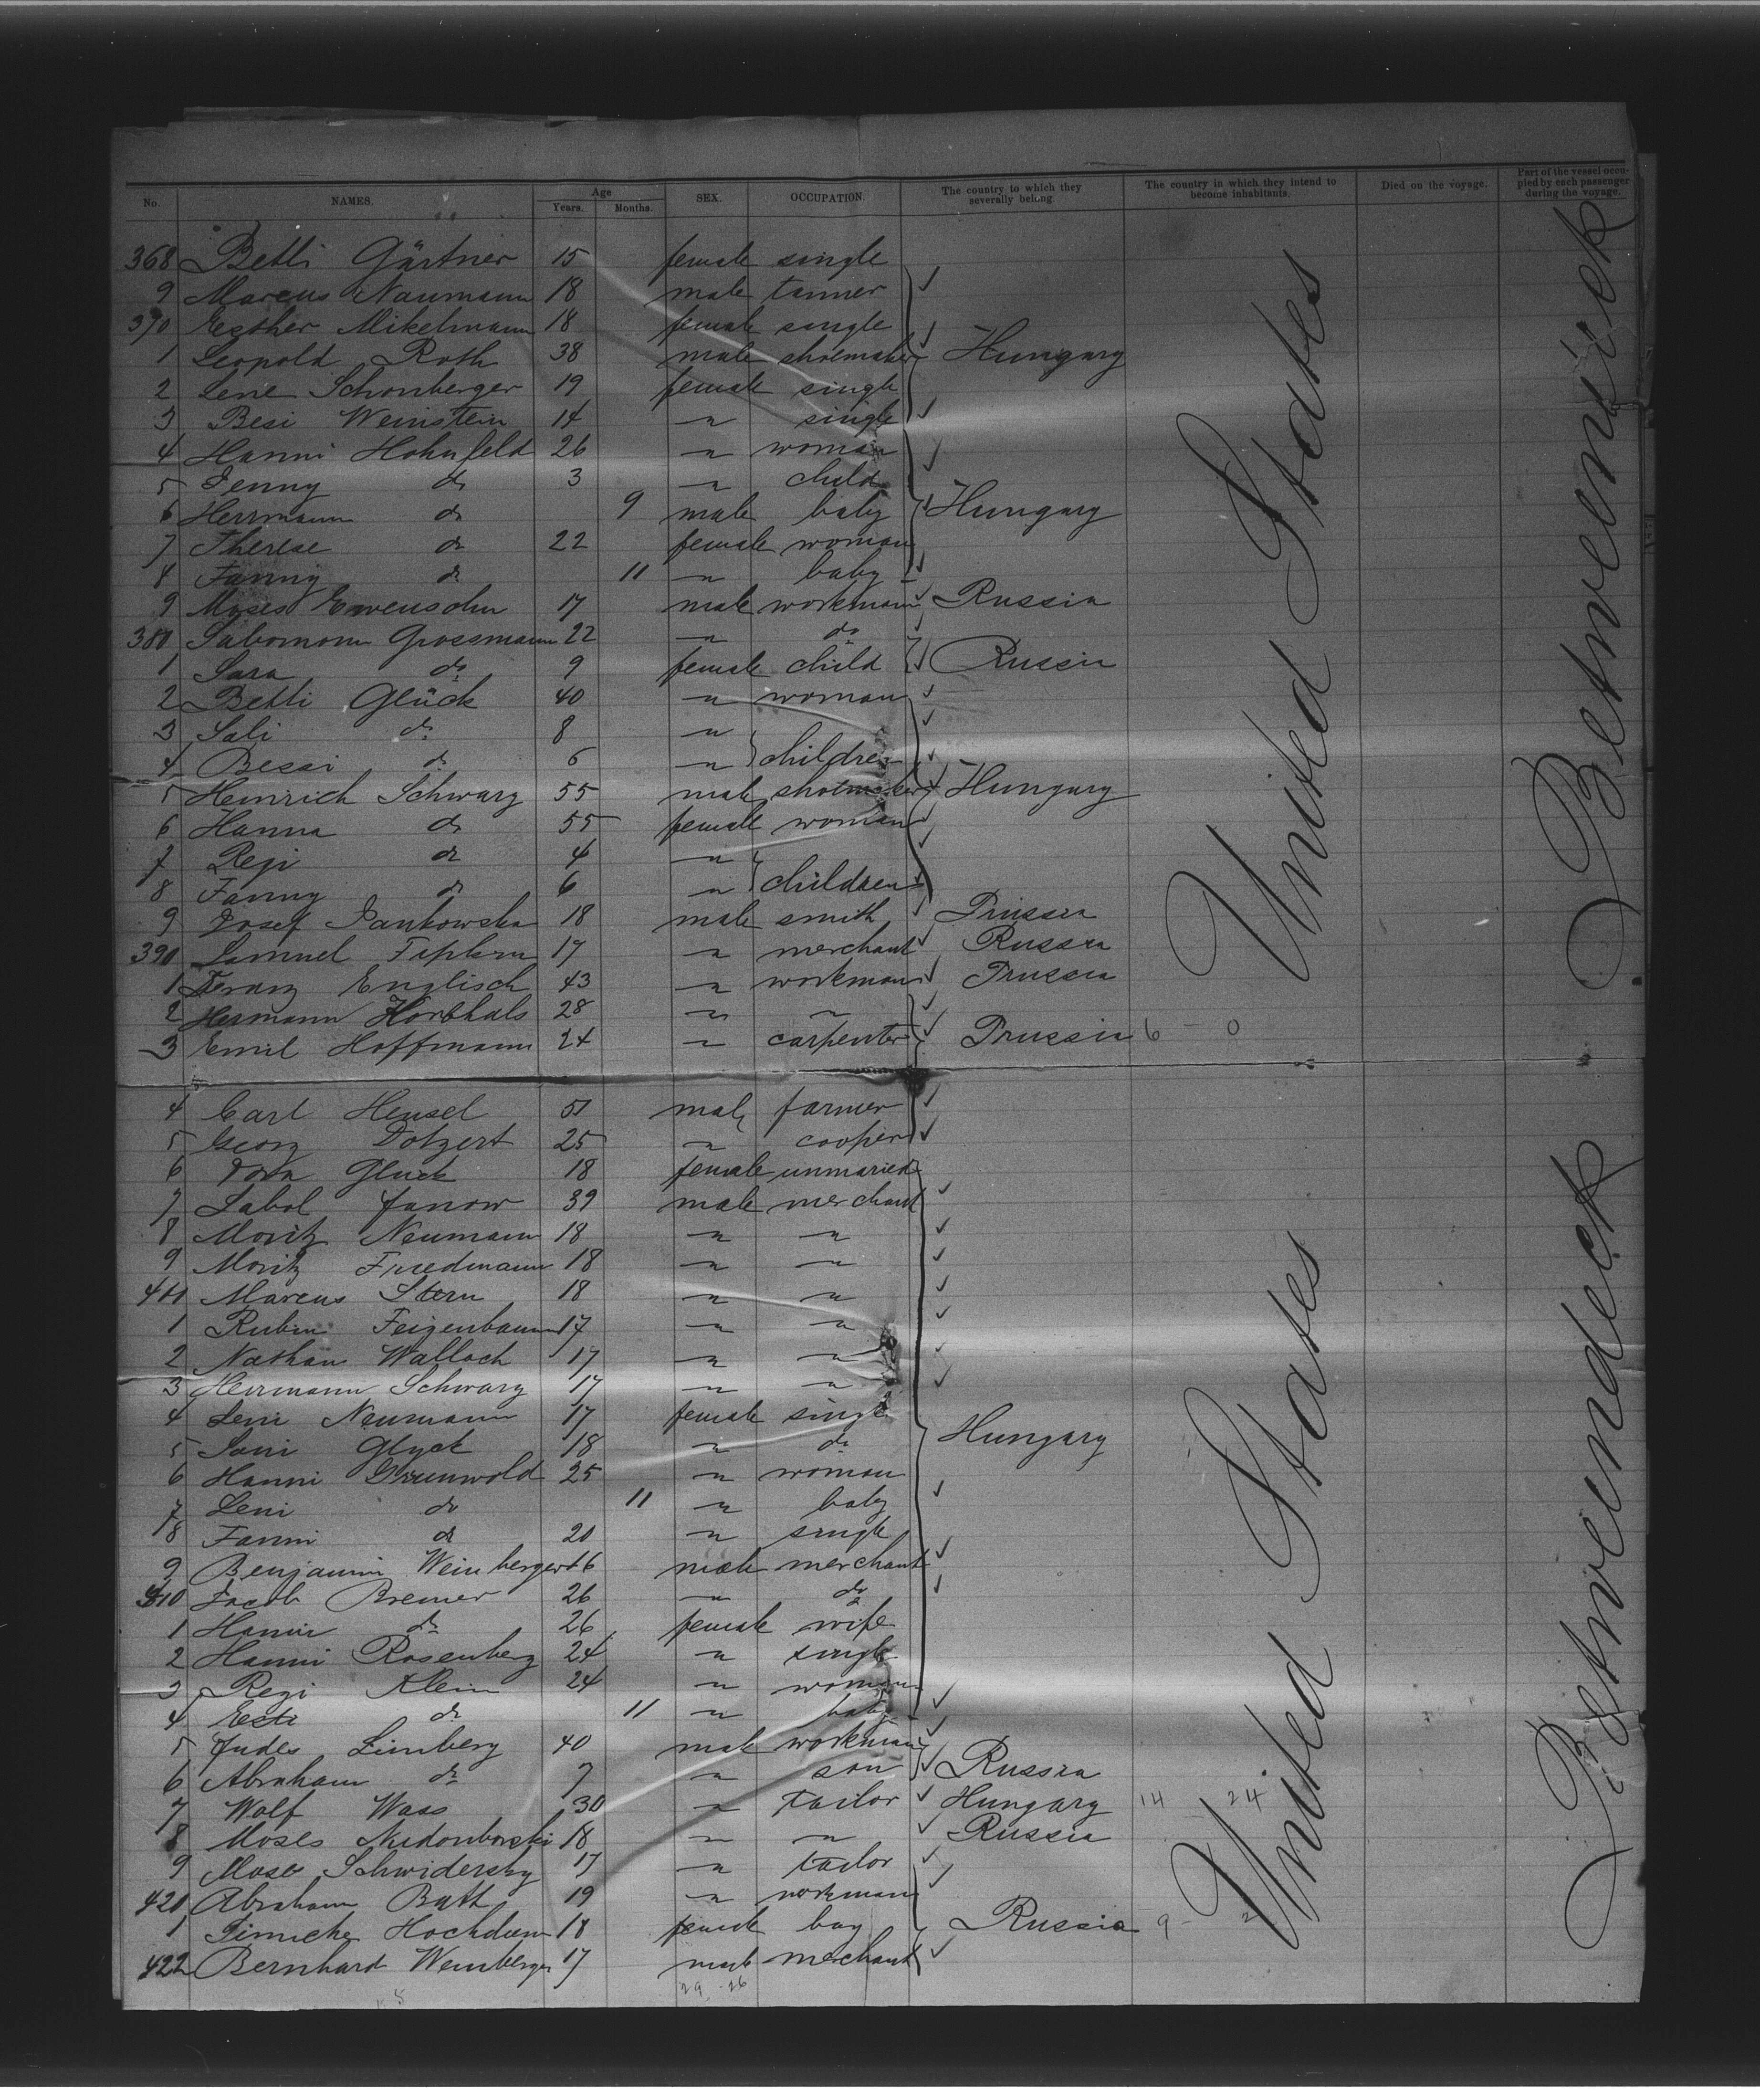 No. NAMES. Age Years. Months. SEX. OCCUPATION. The country to which they severally belong The country in which they intend to become inhabitants. Died on the voyage. Part of the vessel occupied by each passenger during the voyage.
368 Betti Gärtner 15 female single
9 Marcus Naumann 18 male tanner
370 Esther Mikelmann 18 female single
1 Leopold Roth 38 male shoemaker Hungary
2 Lene Schonberger 19 female single
3 Besi Weinstein 14 " single
4 Hanni Hohnfeld 26 " woman
5 Jenny do 3 " child
6 Herrmann do 9 male baby Hungary
7 Therese do 22 female woman
8 Fanny do 11 " baby
9 Moses 17 male workman Russia
380 Grossmann 22 " do
1 Sara do 9 female child Russia
2 Betti Glück 40 " woman
3 Sali do 8 "
4 Bessi do 6 " children
5 Heinrich Schwarz 55 male shoemaker Hungary
6 Hanna do 55 female woman
7 Regi do 4 "
8 Fanny do 6 " children
9 Josef Pankowska 18 male smith Prussia
390 Samuel 17 " merchant Russia
1 Franz Englisch 43 " workman Prussia
2 Hermann 28 " "
3 Emil Hoffmann 24 " carpenter Prussia 6 - 0
4 Carl Hensel 51 male farmer
5 Georg Dotzert 25 " cooper
6 Dora Gluck 18 female unmaried
7 Janow 39 male merchant
8 Moritz Neumann 18 " "
9 Moritz Friedmann 18 " "
Marcus Stern 18 " "
1 Rubin Feigenbaum 17 " "
2 Nathan Walloch 17 " "
3 Herrmann Schwarz 17 " "
4 Leni Neumann 17 female single
5 Sani Glyck 18 " do Hungary
6 Hanni Grunwold 25 " woman
7 Leni do 11 " baby
8 Fanni do 20 " single
9 Benjamin Weinberger 16 male merchant
410 Jacob Bremer 26 " do
1 Hanni do 26 female wife
2 Hanni Rosenberg 24 " single
3 Regi Klein 24 " woman
4 Esti do 11 " baby
5 Judes Limberg 40 male workman
6 Abraham do 7 " son Russia
7 Wolf Wass 30 " tailor Hungary 14 24
8 Moses 18 " " Russia
9 Moses Schwidersky 17 " tailor
420 Abraham Bath 19 " workman
1 Hochdum 18 female boy Russia 9 - 2
422 Bernhard Weinberger 17 male merchant
29 - 26
United States
United States
Betweendeck
Betweendeck